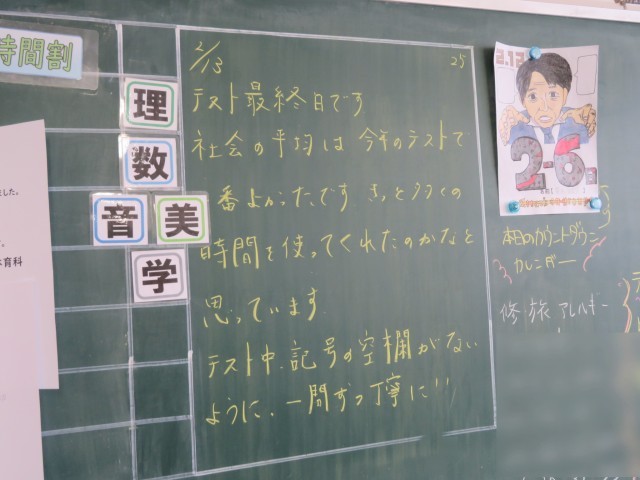 時間割
理
数
音 美
学
2/13 25
テスト最終日です
社会の平均は今年のテストで
一番よかったです きっと多くの
時間を使ってくれたのかなと
思っています.
テスト中、記号の空欄がない
ように、一問ずつ丁寧に!!
2.13
2-6
本日のカウントダウン
カレンダー
修・旅 アレルギー
ました。
育科